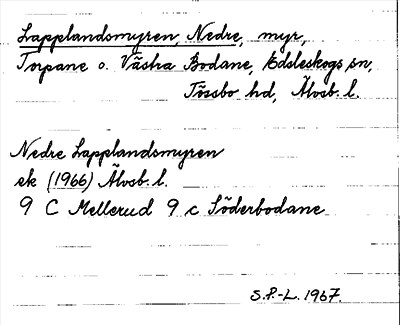 Lapplandsmyren, Nedre, myr,
Torpane o. Västra Bodane, Edsleskogs sn,
Tössbo hd, Älvsb. l.
Nedre Lapplandsmyren
ek (1966) Älvsb. l.
9 C Mellerud 9 c Söderbodane
S.P.-L. 1967.